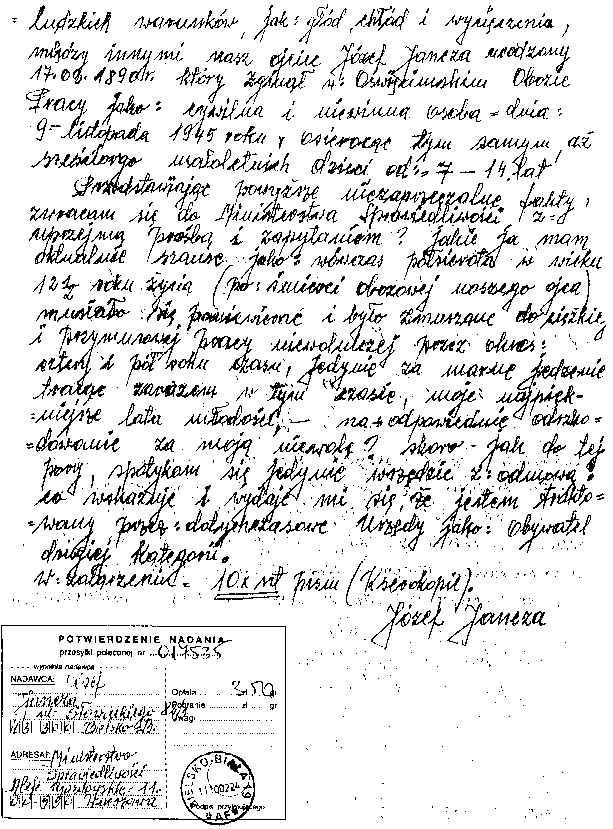 ludzkich warunków, jak: głód, chłód i wycięczenia,
między innymi nasz ojciec Józef Jancza urodzony
17.03.1890r. który zginął w: Oświęcimskim Obozie
Pracy jako: cywilna i niewinna osoba = dnia:
9-listopada 1945 roku, osierocąc tym samym, aż
sześcioro małoletnich dzieci od:= 7 – 14. lat
Przedstawiając powyższe niezaprzeczalne fakty,
zwracam się do Ministerstwa Sprawiedliwości z=
uprzejmą prośbą i zapytaniem? Jakie ja mam
aktualnie szanse jako: wówczas półsierota w wieku
12½ roku życia (po: śmierci obozowej naszego ojca)
musiało się poniewierać i było zmuszane do ciężkiej
i przymusowej pracy niewolniczej przez okres:
cztery i pół roku czasu, jedynie za marne jedzenie
tracąc zarazem w tym czasie, moje najpięk-
=niejsze lata młodości, – na= odpowiednie odszko=
=dowanie za moją niewolę? skoro - jak do tej
pory, spotykam się jedynie wszędzie z: odmową?
co wskazuje i wydaje mi się, że jestem trakto=
=wany przez: dotychczasowe Urzędy jako: Obywatel
drugiej kategorii.
W: załączeniu = 10x szt pism (Kserokopie).
Józef Jancza
POTWIERDZENIE NADANIA
przesyłki poleconej nr 017535
wypełnia nadawca
NADAWCA: Józef
Jancza
ul. Słowackiego
Bielsko-B.
Opłata 3 zł 50 gr
Pobranie zł gr
Uwagi
ADRESAT: Ministerstwo
Sprawiedliwości
Aleje Ujazdowskie 11.
Warszawa
BIELSKO-BIAŁA 19
Podpis przyjmującego